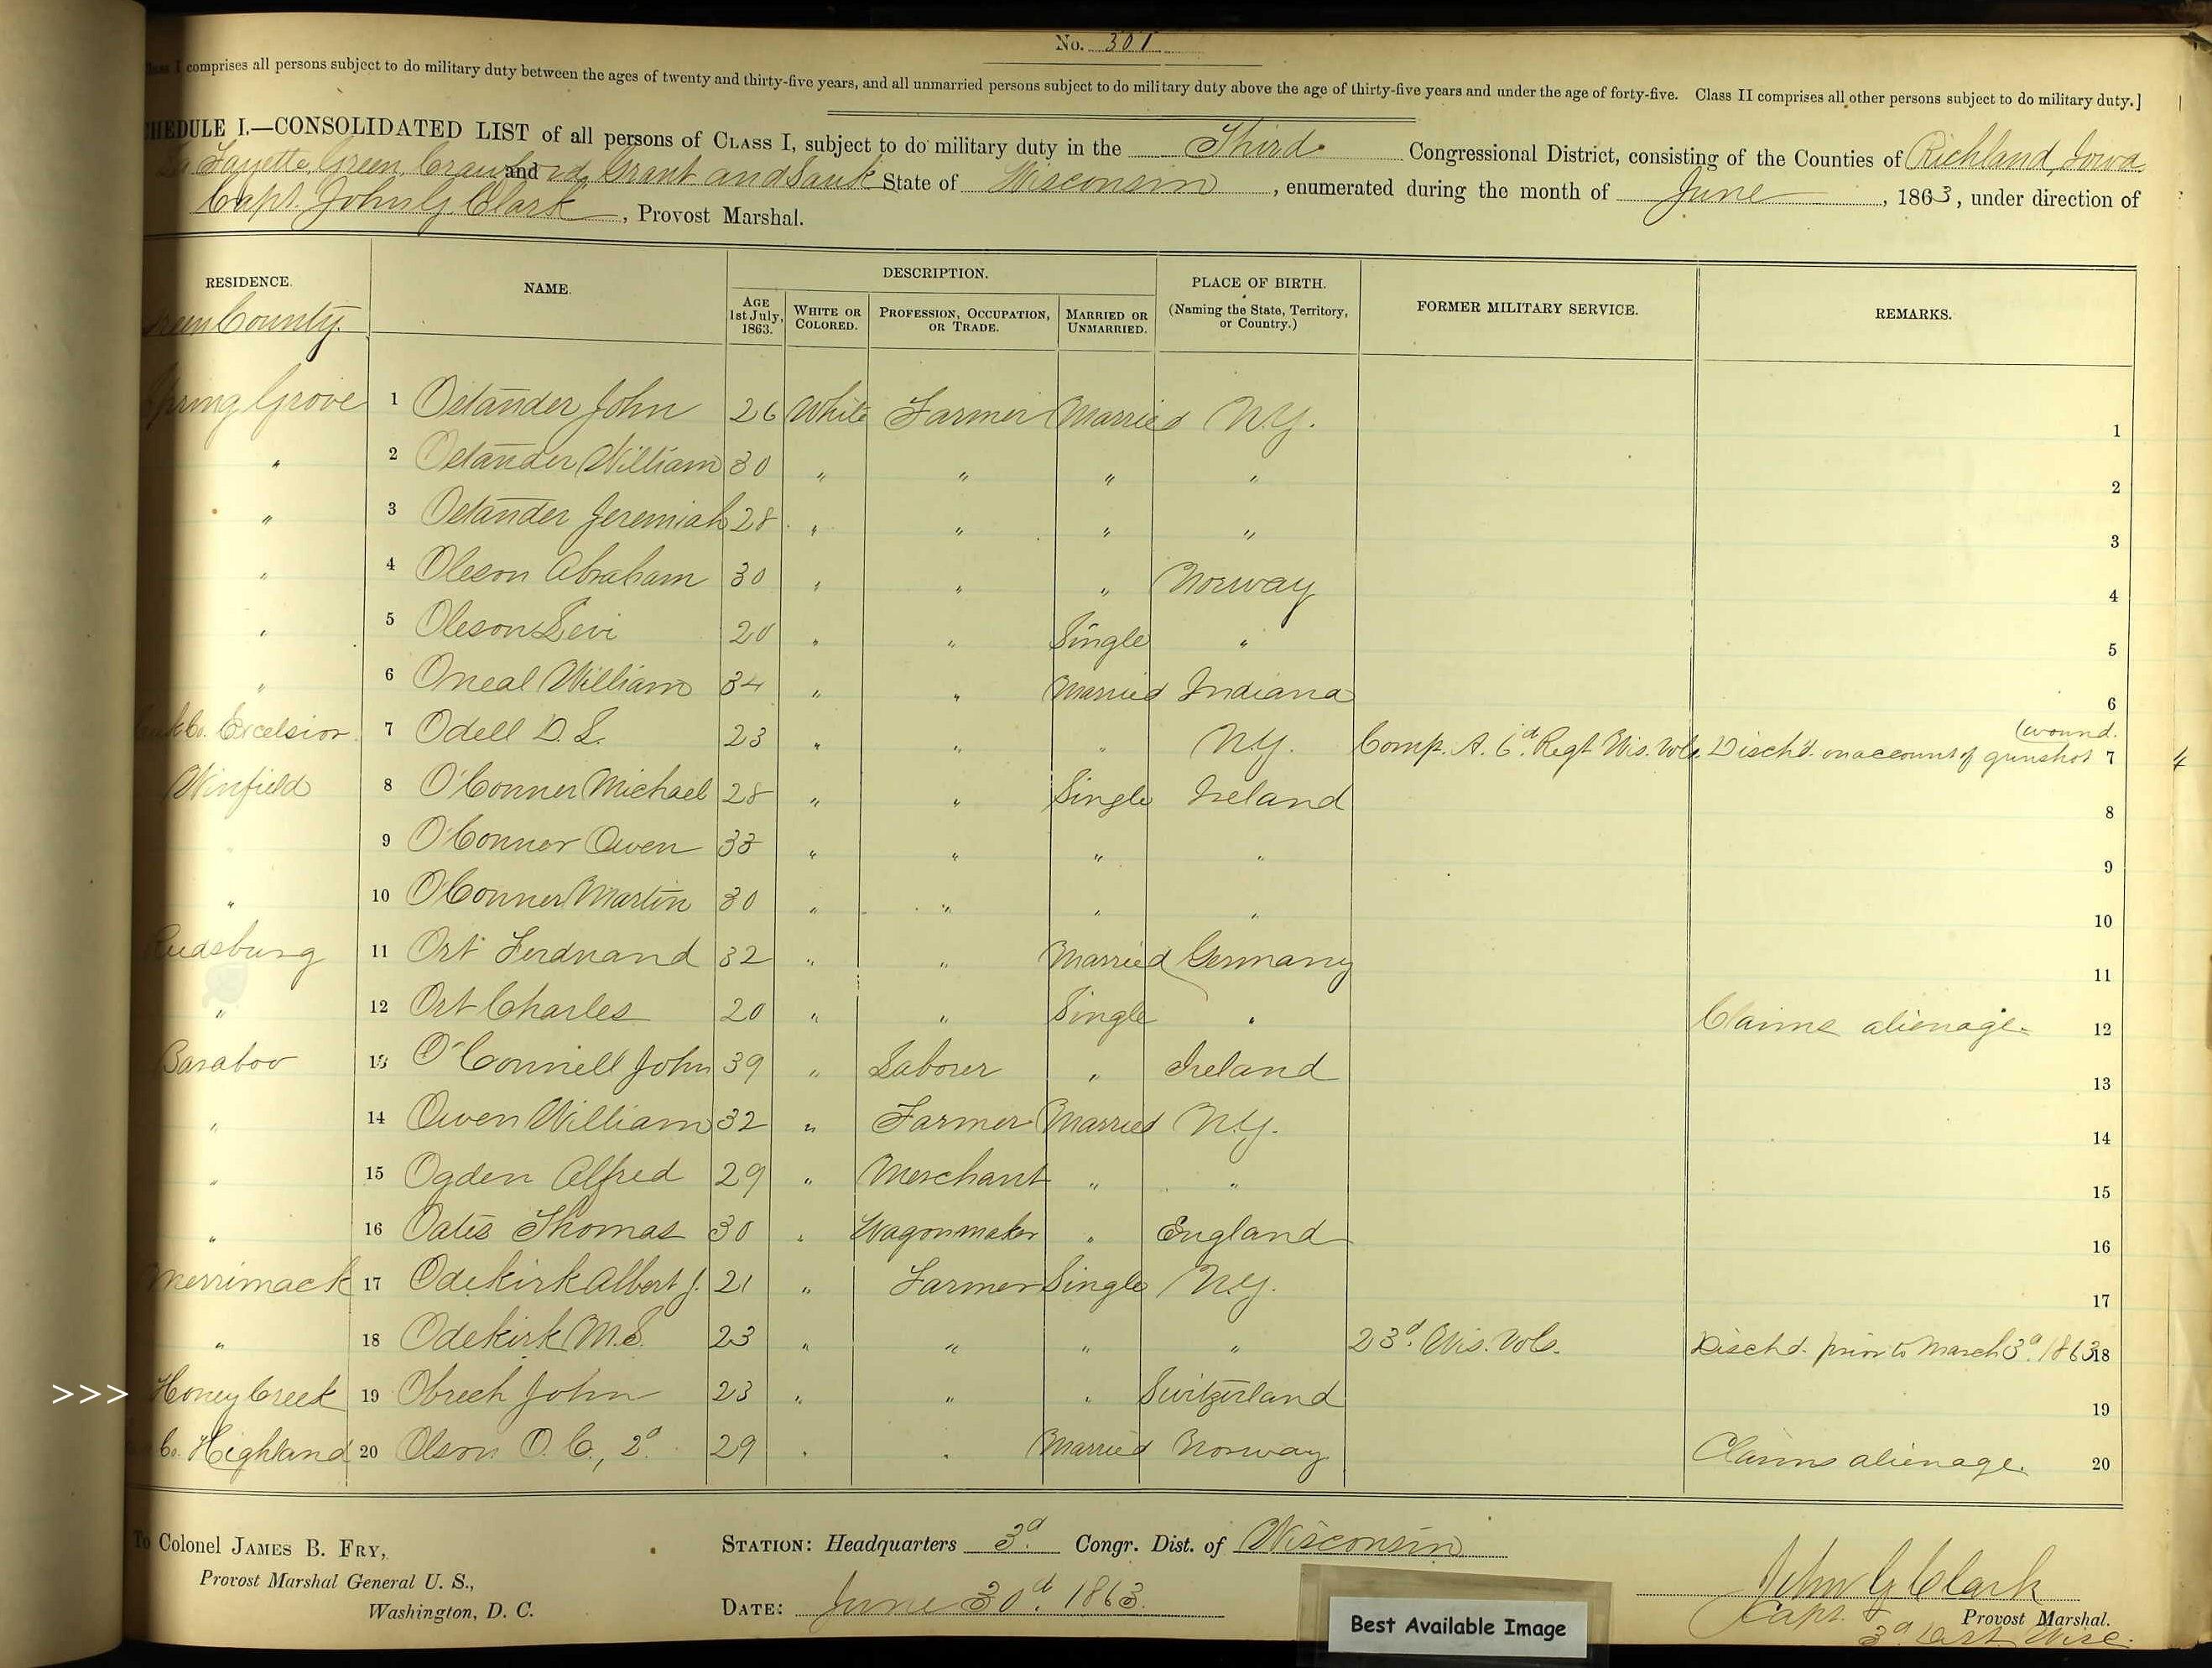 No. 301
Class I comprises all persons subject to do military duty between the ages of twenty and thirty-five years, and all unmarried persons subject to do military duty above the age of thirty-five years and under the age of forty-five. Class II comprises all other persons subject to do military duty.]
SCHEDULE I.—CONSOLIDATED LIST of all persons of CLASS I, subject to do military duty in the Third Congressional District, consisting of the Counties of Richland, Iowa
La Fayette, Green, Crawford, and Grant and Sauk State of Wisconsin, enumerated during the month of June, 1863, under direction of
Capt. John G Clark, Provost Marshal.
RESIDENCE. NAME. DESCRIPTION. PLACE OF BIRTH. FORMER MILITARY SERVICE. REMARKS.
AGE 1st July, 1863. WHITE OR COLORED. PROFESSION, OCCUPATION, OR TRADE. MARRIED OR UNMARRIED. (Naming the State, Territory, or Country.)
Green County.
Spring Grove 1 Ostander John 26 White Farmer Married N.Y. 1
" 2 Ostander William 30 " " " " 2
" 3 Ostander Jeremiah 28 " " " " 3
" 4 Oleson Abraham 30 " " " Norway 4
" 5 Oleson Levi 20 " " Single " 5
" 6 Oneal William 34 " " Married Indiana 6
Sauk Co. Excelsior 7 Odell D. L. 23 " " " N.Y. Comp. A. 6d Regt Wis. Vols. Disch'd. on account of gunshot (wound. 7
Winfield 8 O'Conner Michael 28 " " Single Ireland 8
" 9 O'Conner Owen 33 " " " " 9
" 10 O'Conner Martin 30 " " " " 10
Reedsburg 11 Ort Ferdnand 32 " " Married Germany 11
" 12 Ort Charles 20 " " Single " Claims alienage. 12
Baraboo 13 O'Connell John 39 " Laborer " Ireland 13
" 14 Owen William 32 " Farmer Married N.Y. 14
" 15 Ogden Alfred 29 " Merchant " " 15
" 16 Oates Thomas 30 " Wagonmaker " England 16
Merrimack 17 Odekirk Albert J. 21 " Farmer Single N.Y. 17
" 18 Odekirk M. S. 23 " " " " 23d. Wis. Vols. Disch'd. prior to March 3d. 1863 18
>>> Honey Creek 19 Obrech John 23 " " " Switzerland 19
Co. Highland 20 Olson O. C., 2d. 29 " " Married Norway Claims alienage. 20
To Colonel JAMES B. FRY,
Provost Marshal General U. S.,
Washington, D. C.
STATION: Headquarters 3d. Congr. Dist. of Wisconsin
DATE: June 30d. 1863.
John G Clark
Capt. & Provost Marshal.
3d Dist. Wisc.
Best Available Image